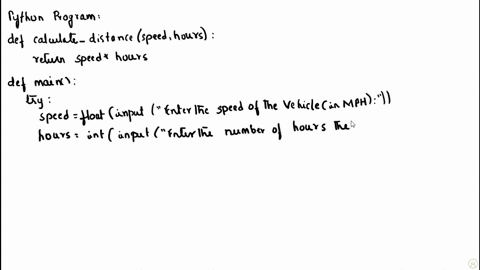 Python Program:
def calculate_distance(speed, hours):
return speed* hours
def main():
try:
speed=float(input("Enter the speed of the Vehicle(in MPH):"))
hours= int(input("Enter the number of hours the